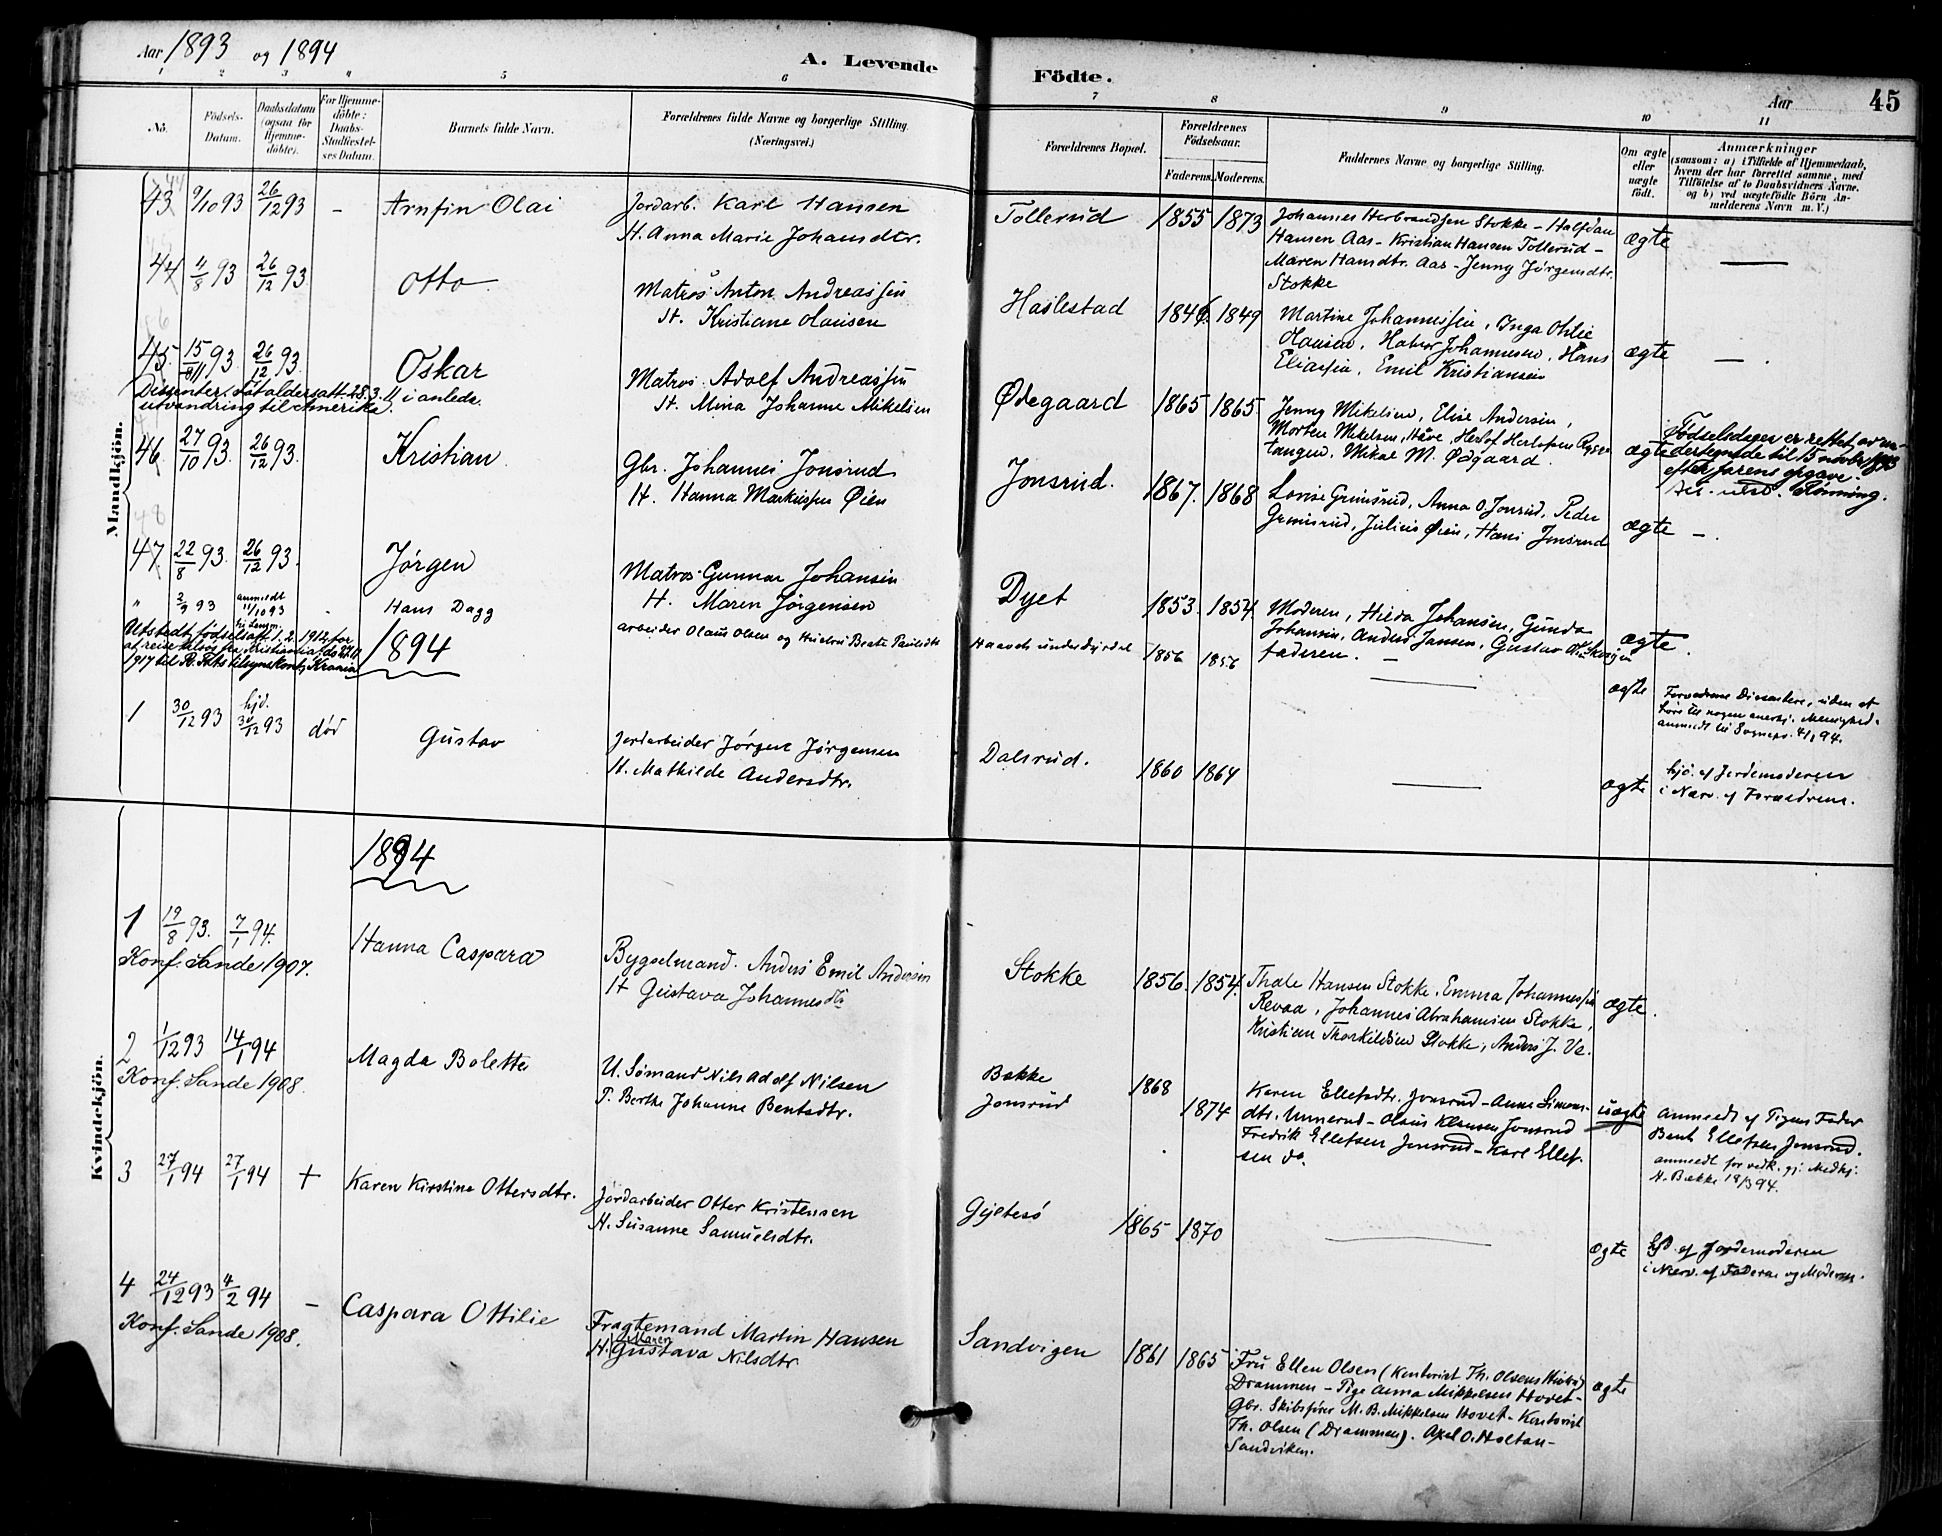 Aar 1893 og 1894
A. Levende Födte.
Aar 45
1 2 3 4 5 6 7 8 9 10 11
No.
Födsels-Datum.
Daabsdatum (ogsaa for Hjemme-döbte).
For Hjemme-döbte: Daabs-Stadfæstel-ses Datum.
Barnets fulde Navn.
Forældrenes fulde Navne og borgerlige Stilling. (Næringsvei.)
Forældrenes Bopæl.
Forældrenes Födselsaar.
Faderens. Moderens.
Faddernes Navne og borgerlige Stilling.
Om ægte eller uægte födt.
Anmærkninger
(saasom: a) i Tilfælde af Hjemmedaab, hvem der har forrettet samme, med Tilföielse af to Daabsvidners Navne. og b) ved uægtefödte Börn An-melderens Navn m. V.)
Mandkjön.
43 9/10 93 26/12 93 - Arnfin Olai
Jordarb. Karl Hansen
H. Anna Marie Johansdtr.
Tollerud 1855 1873
Johannes Herbrandsen Stokke - Halfdan
Hansen Aas - Kristian Hansen Tollerud -
Maren Hansdtr. Aas - Jenny Jørgensdtr.
Stokke
ægte
44 4/8 93 26/12 93 Otto
Matros Anton Andreassen
H. Kristiane Olausen
Haslestad 1846 1849
Martine Johannessen, Inga Otilie
Olausen, Johannesen, Hans
Eliassen, Emil Kristiansen
ægte
45 15/11 93 26/12 93 Oskar
Dissenter. Løst aldersatt. 28.3.11 i anledn.
utvandring til Amerika.
Matros Adolf Andreassen
H. Mina Johanne Mikelsen
Ødegaard 1865 1865
Jenny Mikelsen, Elise Andersen,
Morten Mikelsen, Haave, Herlof Herlofsen Rygge
tangen, Mikal M. Ødgaard.
ægte
Fødselsdagen er rettet av un-
dertegnede til 15 novbr. 1893
efter farens opgave.
Rønning.
46 27/10 93 26/12 93 Kristian
Gbr. Johannes Jonsrud
H. Hanna Markussen Øien
Jonsrud. 1867. 1868
Lovise Grimsrud, Anna O. Jonsrud, Peder
Grimsrud, Julius Øien, Hans Jonsrud
ægte -.
47 22/8 93 26/12 93 Jørgen
Matros Gunnar Johansen
H. Maren Jørgensen
Dyet 1853 1854
Moderen, Hilda Johansen, Gunda
Johansen, Anders Jansen, Gustav
faderen.
ægte.
" 2/9 93 anmeldt 11/10 93 - Hans Dagg
Utstedt fødselsatt. 1.2.1912 for
arbeider Olaus Olsen og Hustru Beate Paulsdtr
1856 1856
ægte
Forældrene Dissentere, uden at
høre til nogen Menighed.
anmeldt til Sognepr. 4/1 94.
1894
1 30/12 93 hjd. 30/12 93 død Gustav
Jordarbeider Jørgen Jørgensen
H. Mathilde Andersdtr.
Dalsrud. 1860 1864
ægte
hjd. af Jordemoderen
i Nærv. af Forældrene.
Kvindekjön.
1894
1 19/8 93. 7/1 94. Hanna Caspara
Konf. Sande 1907.
Bygselmand. Anders Emil Andersen
H Gustava Johannesdtr
Stokke 1856. 1854.
Thale Hansen Stokke, Emma Johannessen
Revaa, Johannes Abrahamsen Stokke,
Kristian Thorkildsen Stokke, Anders J. Ve.
ægte.
2 1/12 93 14/1 94 Magda Bolette
Konf. Sande 1908.
U. Sømand Nils Adolf Nilsen
P. Berthe Johanne Bentsdtr.
Bakke 1868
Jonsrud 1874
Karen Ellefsdtr. Jonsrud - Anne Simens-
dtr. Unnerud - Olaus Klausen Jonsrud
Fredrik Ellefsen Jonsrud - Karl Ellef-
sen do.
uægte
anmeldt af Pigens Fader
Bent Ellefsen Jonsrud.
anmeldt for vedk. gj. Medhj.
H. Bakke 18/3 94.
3 27/1 94 27/1 94 + Karen Kirstine Ottersdtr.
Jordarbeider Otter Kristensen
H. Susanne Samuelsdtr.
Gjeltesø 1865 1870
ægte
hjd. af Jordemoderen
i Nærv. af Faderen og Moderen.
4 24/12 93 4/2 94 - Caspara Ottilie
Konf. Sande 1908.
Fragtemand Martin Hansen
H. Maren Gustava Nilsdtr
Sandvigen 1861 1865
Fru Ellen Olsen (Kontorist Th. Olsens Hustru)
Drammen - Pige Anna Mikkelsen Hovet -
Gbr. Skibsfører M. B. Mikkelsen Hovet - Kontorist
Th. Olsen (Drammen). Axel O. Holtan -
Sandviken.
ægte